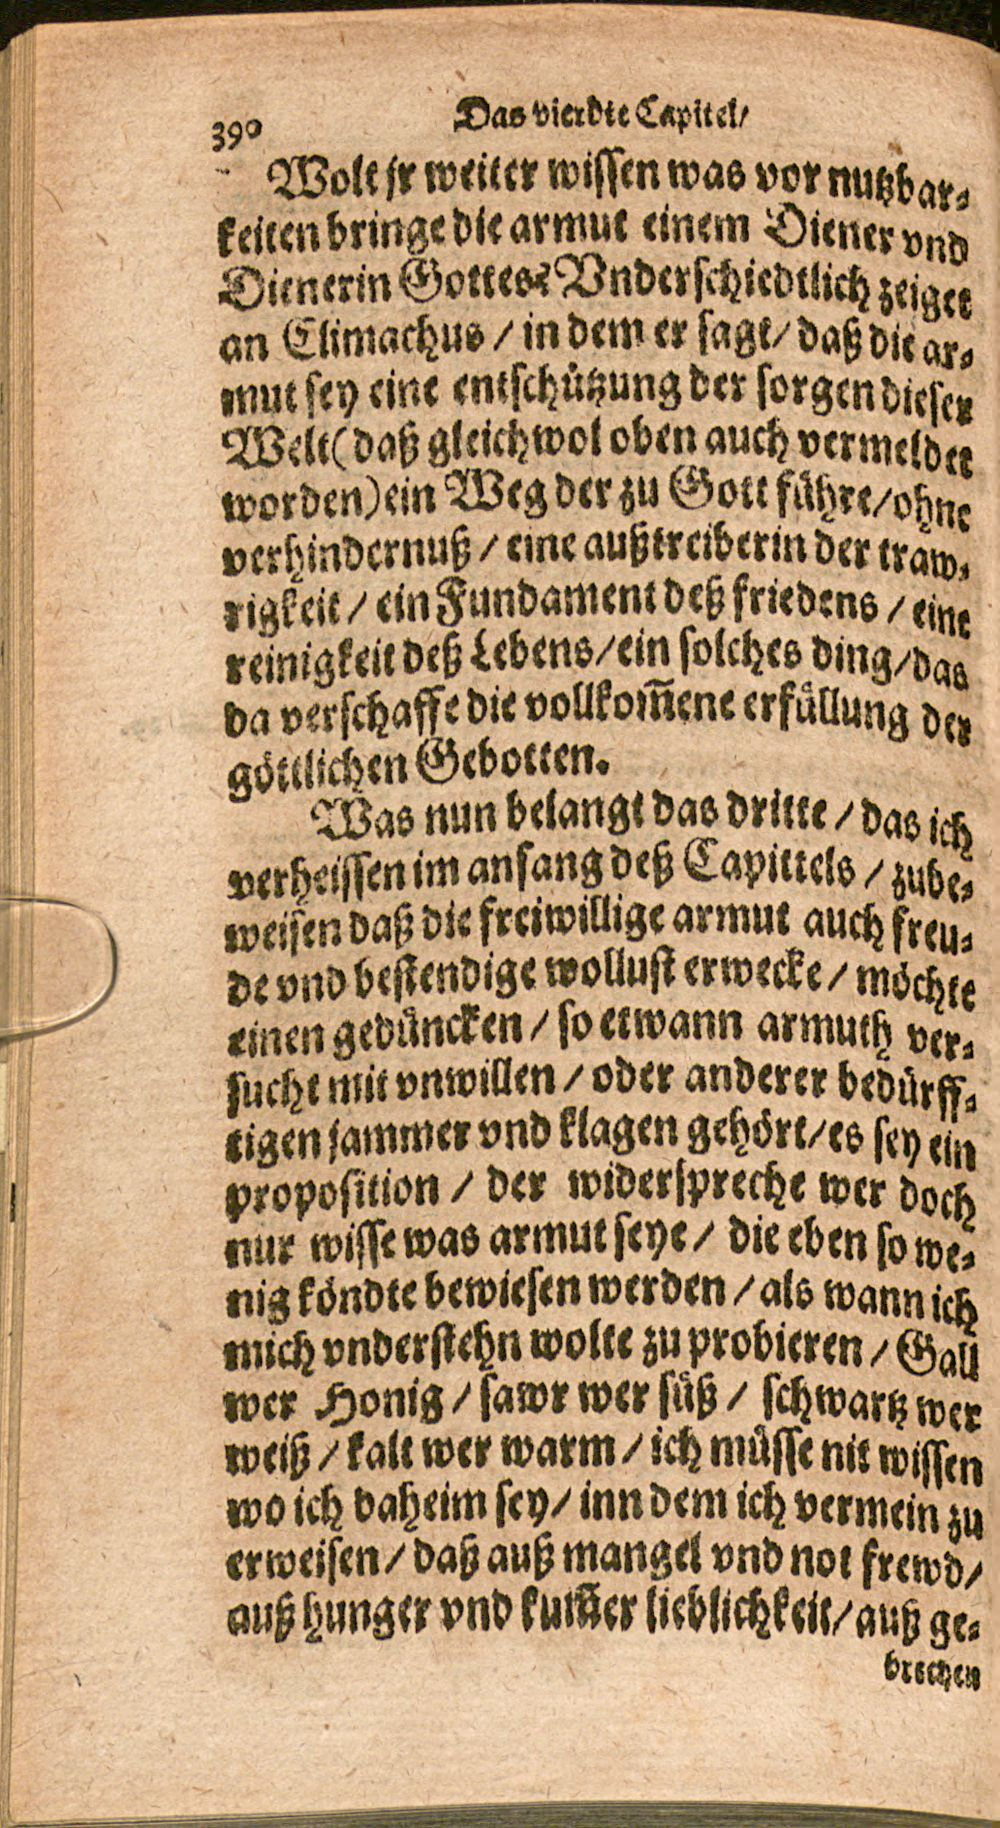 390
Das vierdte Capitel/
Wolt jr weiter wissen was vor nutzbar-
keiten bringe die armut einem Diener vnd
Dienerin Gottes? Vnderschiedtlich zeiget
an Climachus / in dem er sagt / daß die ar-
mut sey eine entschützung der sorgen dieser
Welt (daß gleichwol oben auch vermeldet
worden) ein Weg der zu Gott führe / ohne
verhindernuß / eine außtreiberin der traw-
rigkeit / ein Fundament deß friedens / eine
reinigkeit deß Lebens / ein solches ding / das
da verschaffe die vollkom̃ene erfüllung der
göttlichen Gebotten.
Was nun belangt das dritte / das ich
verheissen im anfang deß Capittels / zube-
weisen daß die freiwillige armut auch freu-
de vnd bestendige wollust erwecke / möchte
einen gedüncken / so etwann armuth ver-
sucht mit vnwillen / oder anderer bedürff-
tigen jammer vnd klagen gehört / es sey ein
proposition / der widerspreche wer doch
nur wisse was armut seye / die eben so we-
nig köndte bewiesen werden / als wann ich
mich vnderstehn wolte zu probieren / Gall
wer Honig / sawr wer süß / schwartz wer
weiß / kalt wer warm / ich müsse nit wissen
wo ich daheim sey / inn dem ich vermein zu
erweisen / daß auß mangel vnd not frewd /
auß hunger vnd kum̃er lieblichkeit / auß ge-
brechen